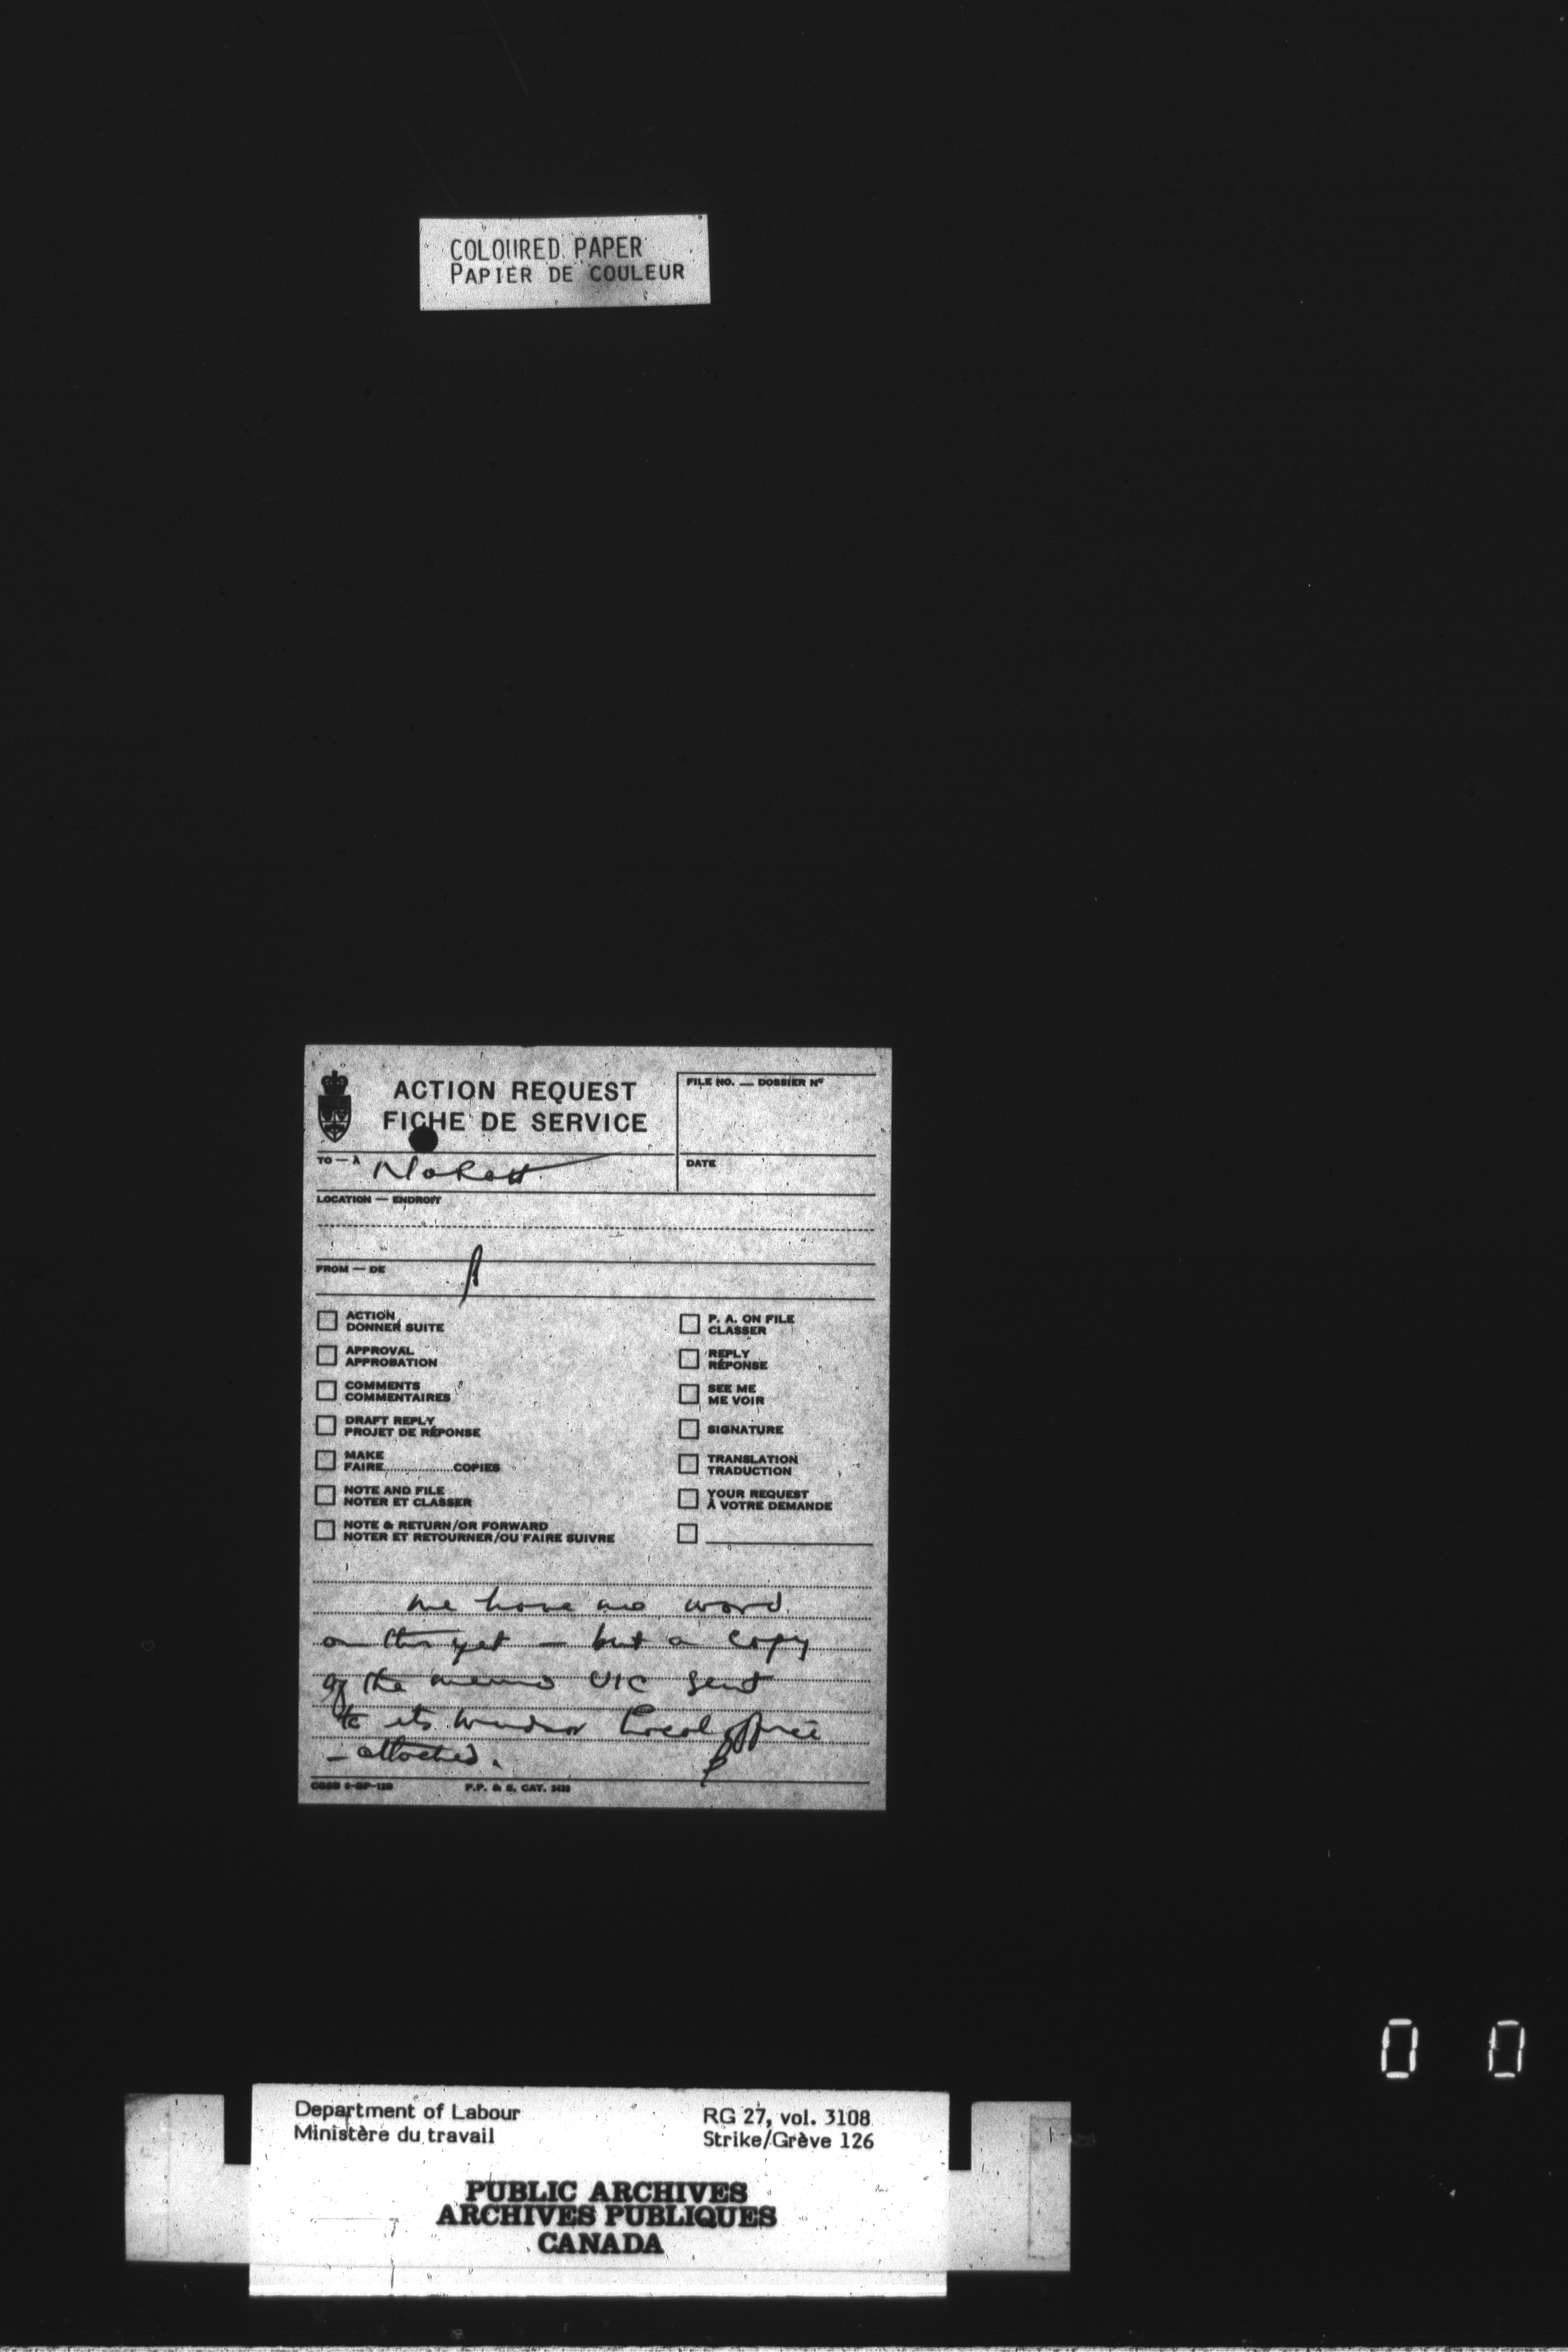 COLOURED PAPER
PAPIER DE COULEUR
ACTION REQUEST
FICHE DE SERVICE
FILE NO. — DOSSIER Nº
TO — À
DATE
LOCATION — ENDROIT
FROM — DE
ACTION
DONNER SUITE
APPROVAL
APPROBATION
COMMENTS
COMMENTAIRES
DRAFT REPLY
PROJET DE RÉPONSE
MAKE
FAIRE..................COPIES
NOTE AND FILE
NOTER ET CLASSER
NOTE & RETURN/OR FORWARD
NOTER ET RETOURNER/OU FAIRE SUIVRE
P. A. ON FILE
CLASSER
REPLY
RÉPONSE
SEE ME
ME VOIR
SIGNATURE
TRANSLATION
TRADUCTION
YOUR REQUEST
À VOTRE DEMANDE
we have no word
on this yet — but a copy
of the memo UIC sent
to its Windsor local office
— attached.
P.P. & S. CAT.
0 0
Department of Labour
Ministère du travail
RG 27, vol. 3108
Strike/Grève 126
PUBLIC ARCHIVES
ARCHIVES PUBLIQUES
CANADA